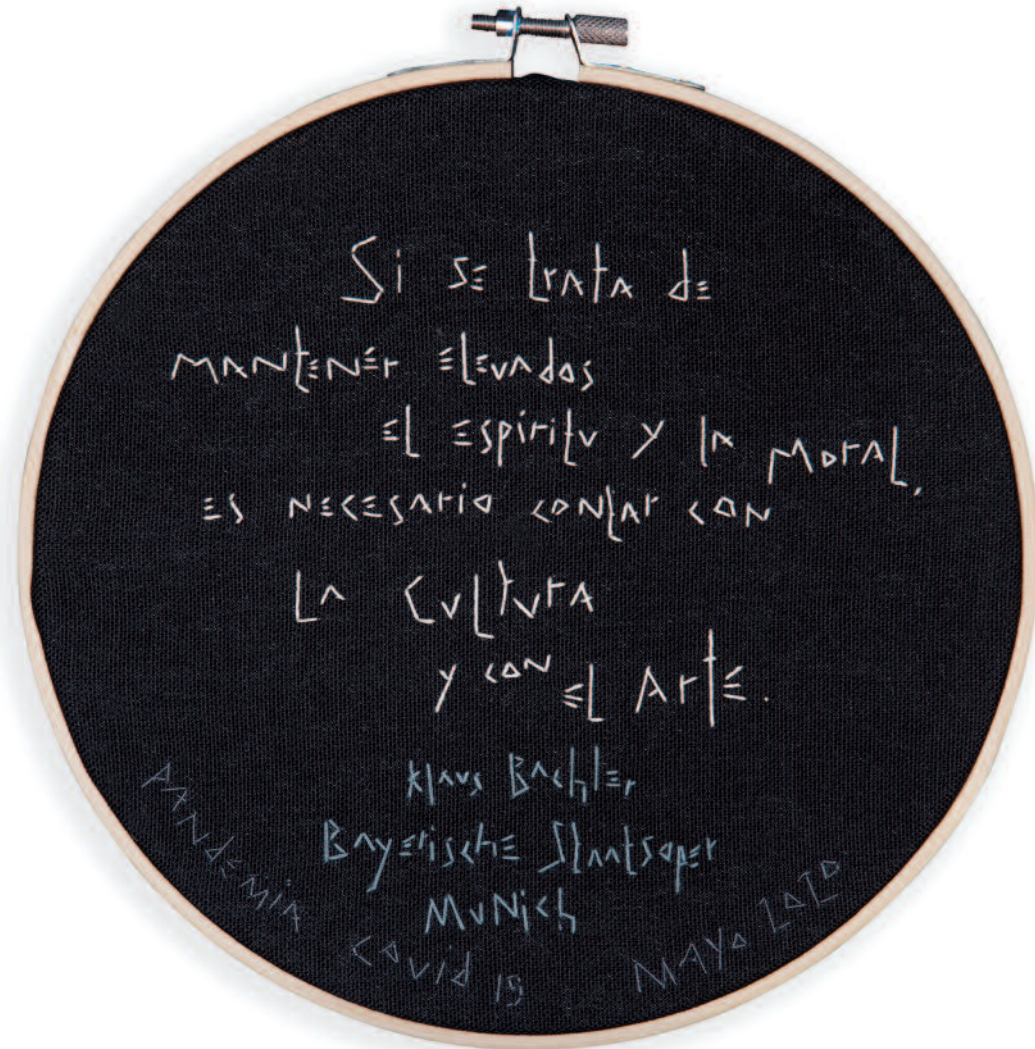 Si se trata de
mantener elevados
el espíritu y la moral,
es necesario contar con
la Cultura
y con el Arte.
Klaus Bachler
Bayerische Staatsoper
Munich
Pandemia Covid 19 Mayo 2020